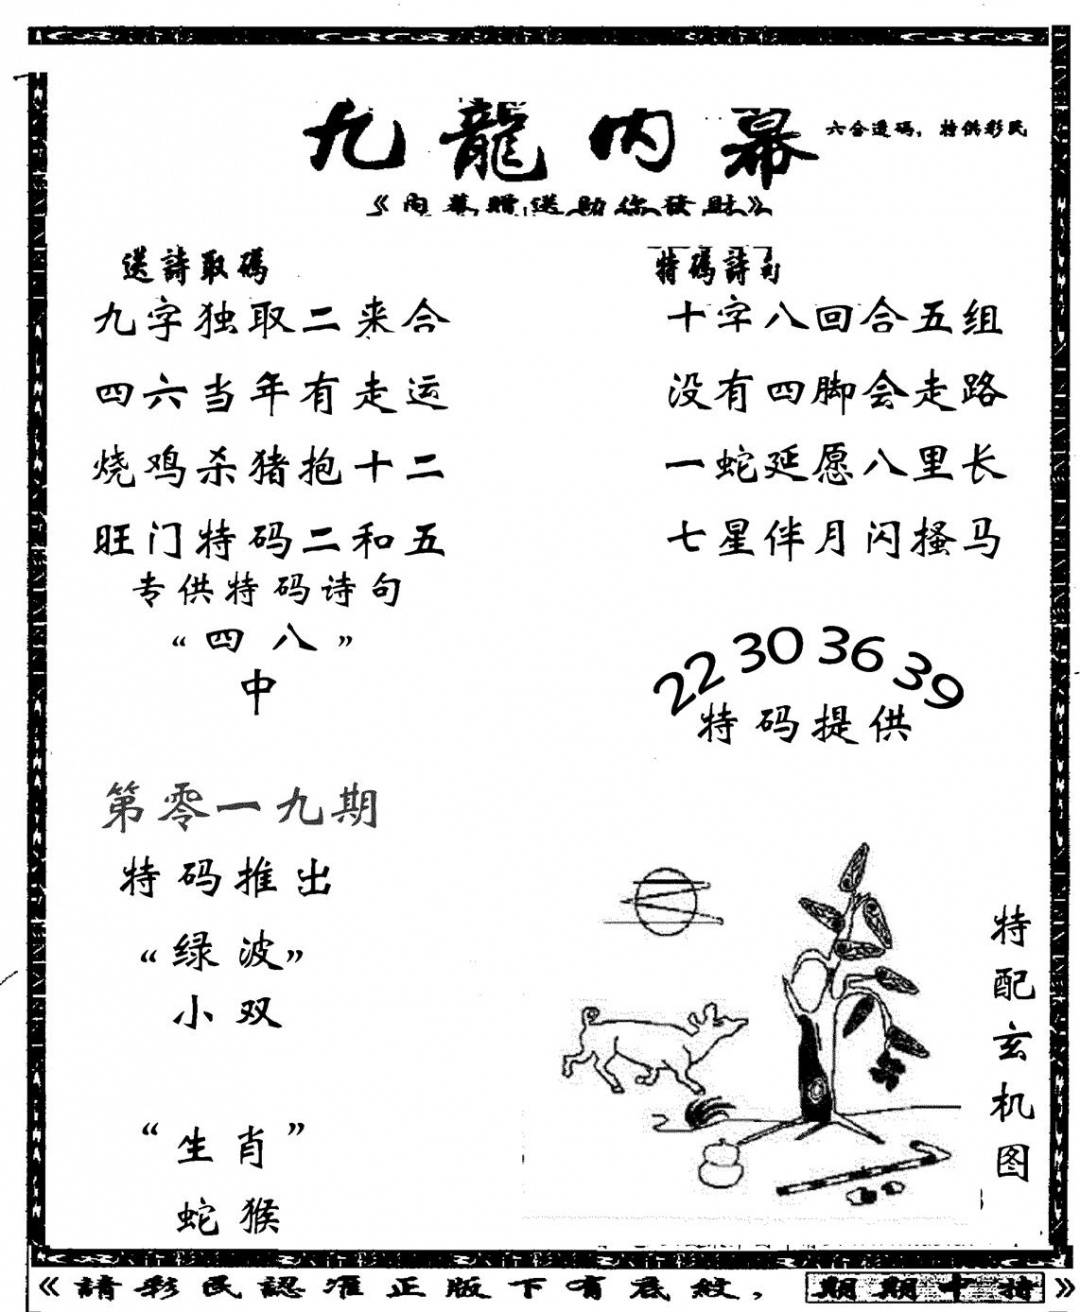 九龍内幕
六合透码，特供彩民
《内幕贈送助你發財》
送詩取碼
九字独取二来合
四六当年有走运
烧鸡杀猪抱十二
旺门特码二和五
专供特码诗句
“四八”
中
特碼詩句
十字八回合五组
没有四脚会走路
一蛇延愿八里长
七星伴月闪掻马
22 30 36 39
特码提供
第零一九期
特码推出
“绿波”
小双
“生肖”
蛇猴
特配玄机图
《請彩民認准正版下有底紋，期期中特》